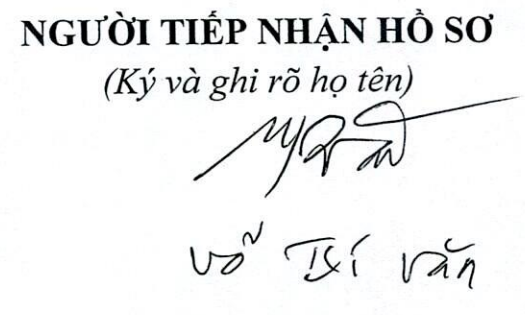 NGƯỜI TIẾP NHẬN HỒ SƠ
(Ký và ghi rõ họ tên)
Võ Trí Văn